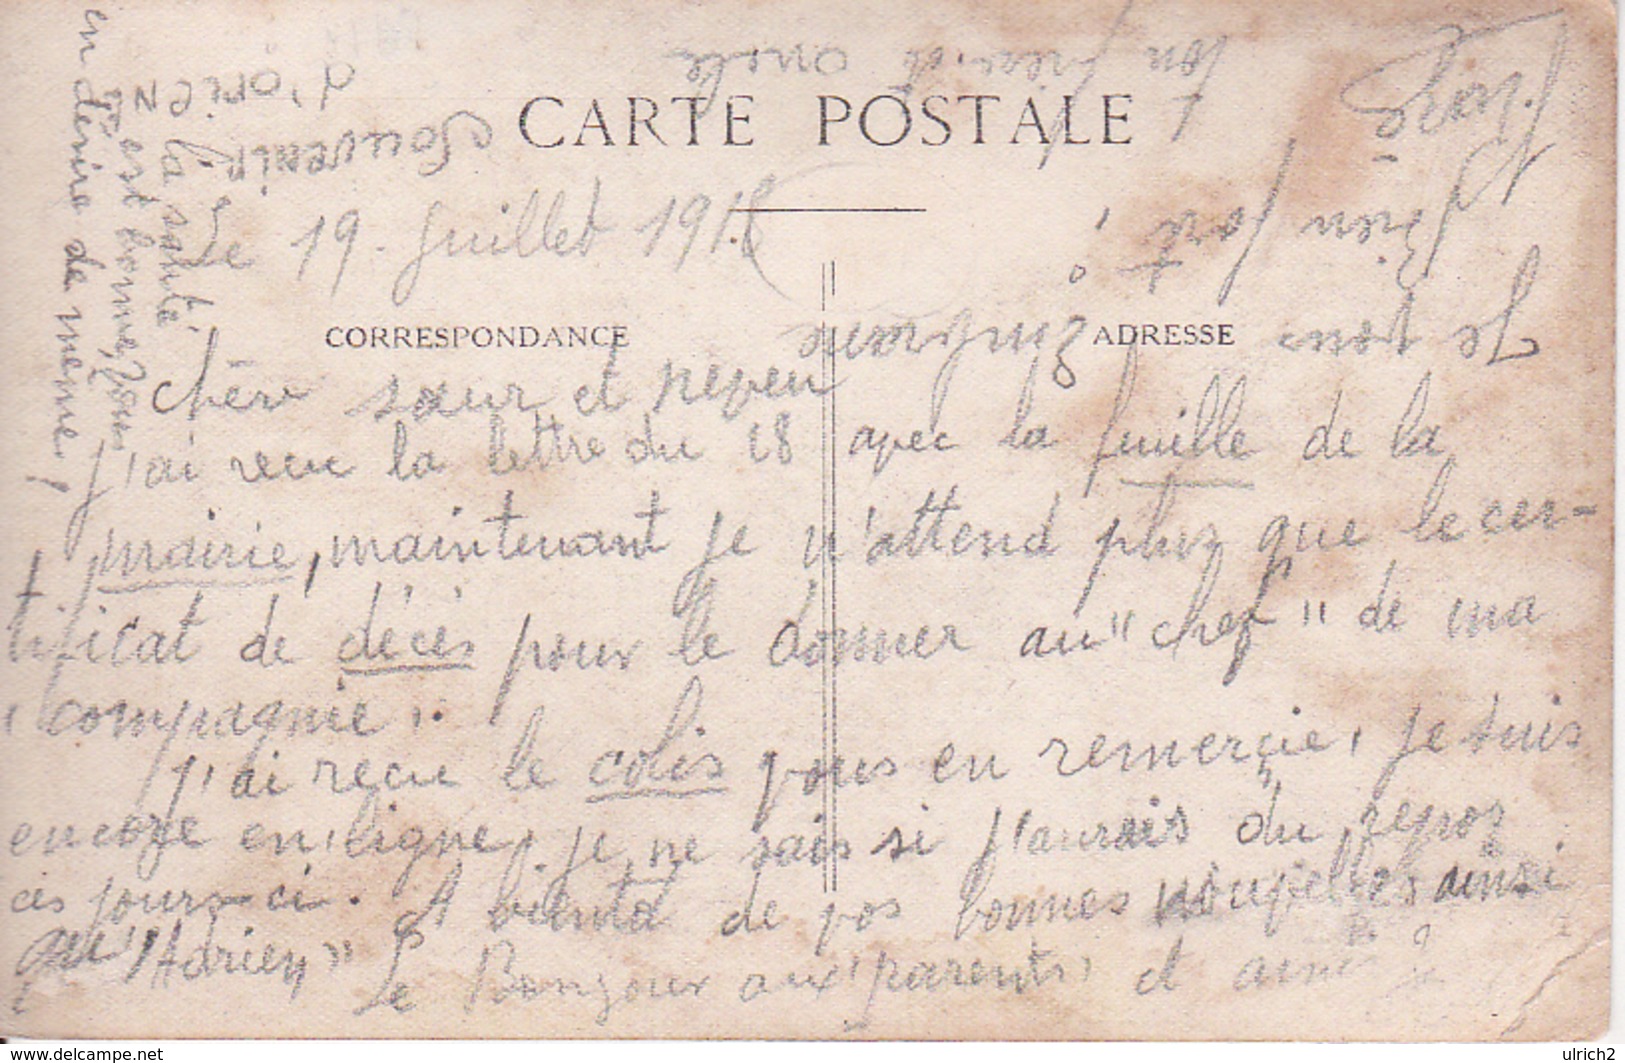 CARTE POSTALE
Le 19 Juillet 1916
CORRESPONDANCE
ADRESSE
chère sœur et neveu
j'ai recu la lettre du 18 avec la fuille de la
mairie, maintenant je n'attend plus que le cer-
tificat de décès pour le donner au "chef" de ma
compagnie.
j'ai recu le colis vous en remerçie, je suis
encore en ligne, je ne sais si j'aurais du repos
ces jours-ci. A bientô de vos bonnes nouvelles ainsi
qu "Adrien" Le Bonjour aux parents et amis
Je vous embrasse
Bien fort,
ton et oncle
Souvenir
d'orient
la santé
est bonne, vous
en désire de meme!
ulrich2
www.delcampe.net